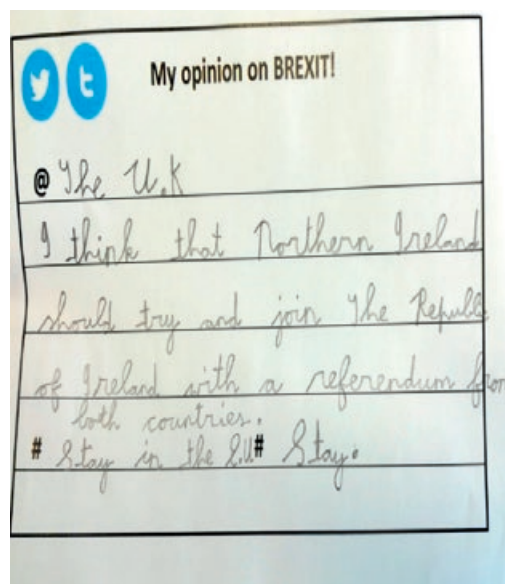 My opinion on BREXIT!
@ The U.K
I think that Northern Ireland
should try and join The Republic
of Ireland with a referendum from
both countries.
# Stay in the E.U# Stay.